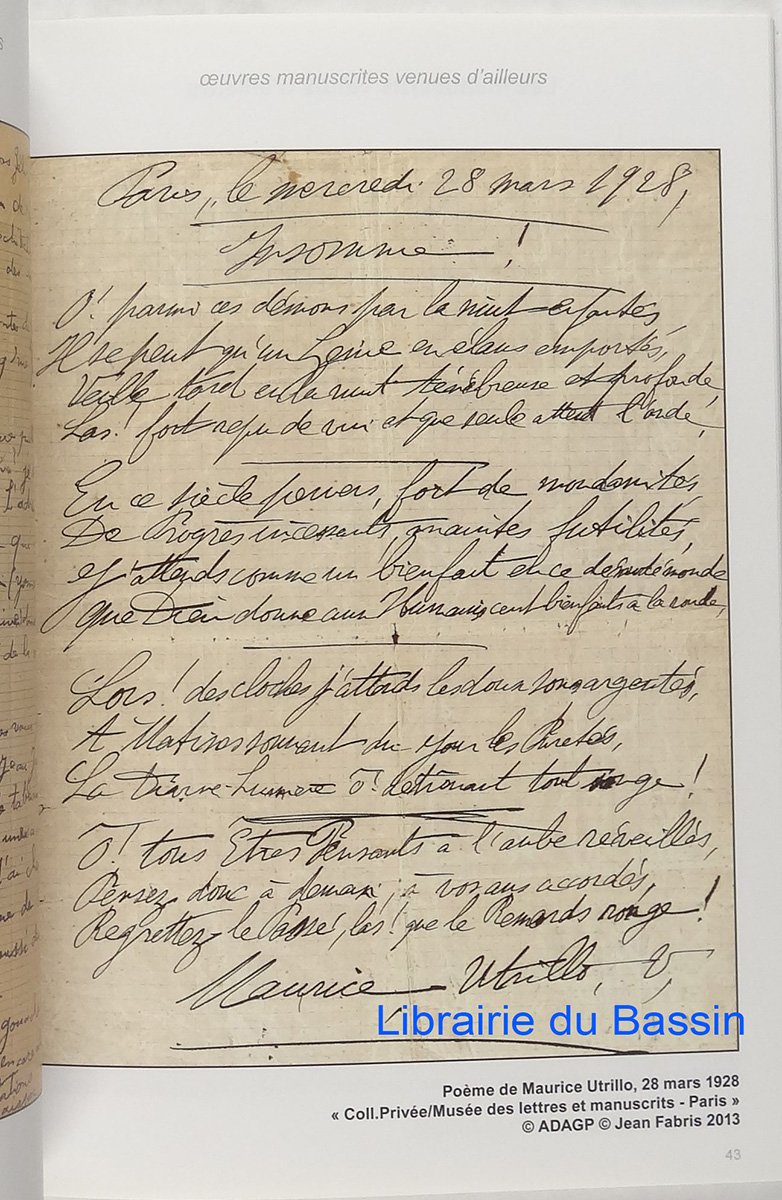 œuvres manuscrites venues d'ailleurs
Paris, le mercredi 28 mars 1928,
Insomnie !
O! parmi ces démons par la nuit enfantés,
Il se peut qu'un Génie en élans emportés,
Veille tard en la nuit ténébreuse et profonde,
Las! fort repu de vin et que seule attend l'onde,
En ce siècle pervers, fort de mondanités,
De Progrès incessants, maintes futilités,
j'attends comme un bienfait en ce monde
que Dieu donne aux Humains cent bienfaits à la ronde,
Lors! des cloches j'attends les doux sons argentés,
A Matines sonnant du jour les Puretés,
La Diane-Lumière O! détrônant tout songe!
O! tous Etres Pensants à l'aube réveillés,
Pensez donc à demain, à vos ans accordés,
Regrettez le Passé, las! que le Remords ronge!
Maurice Utrillo, V,
Librairie du Bassin
Poème de Maurice Utrillo, 28 mars 1928
« Coll.Privée/Musée des lettres et manuscrits - Paris »
© ADAGP © Jean Fabris 2013
43